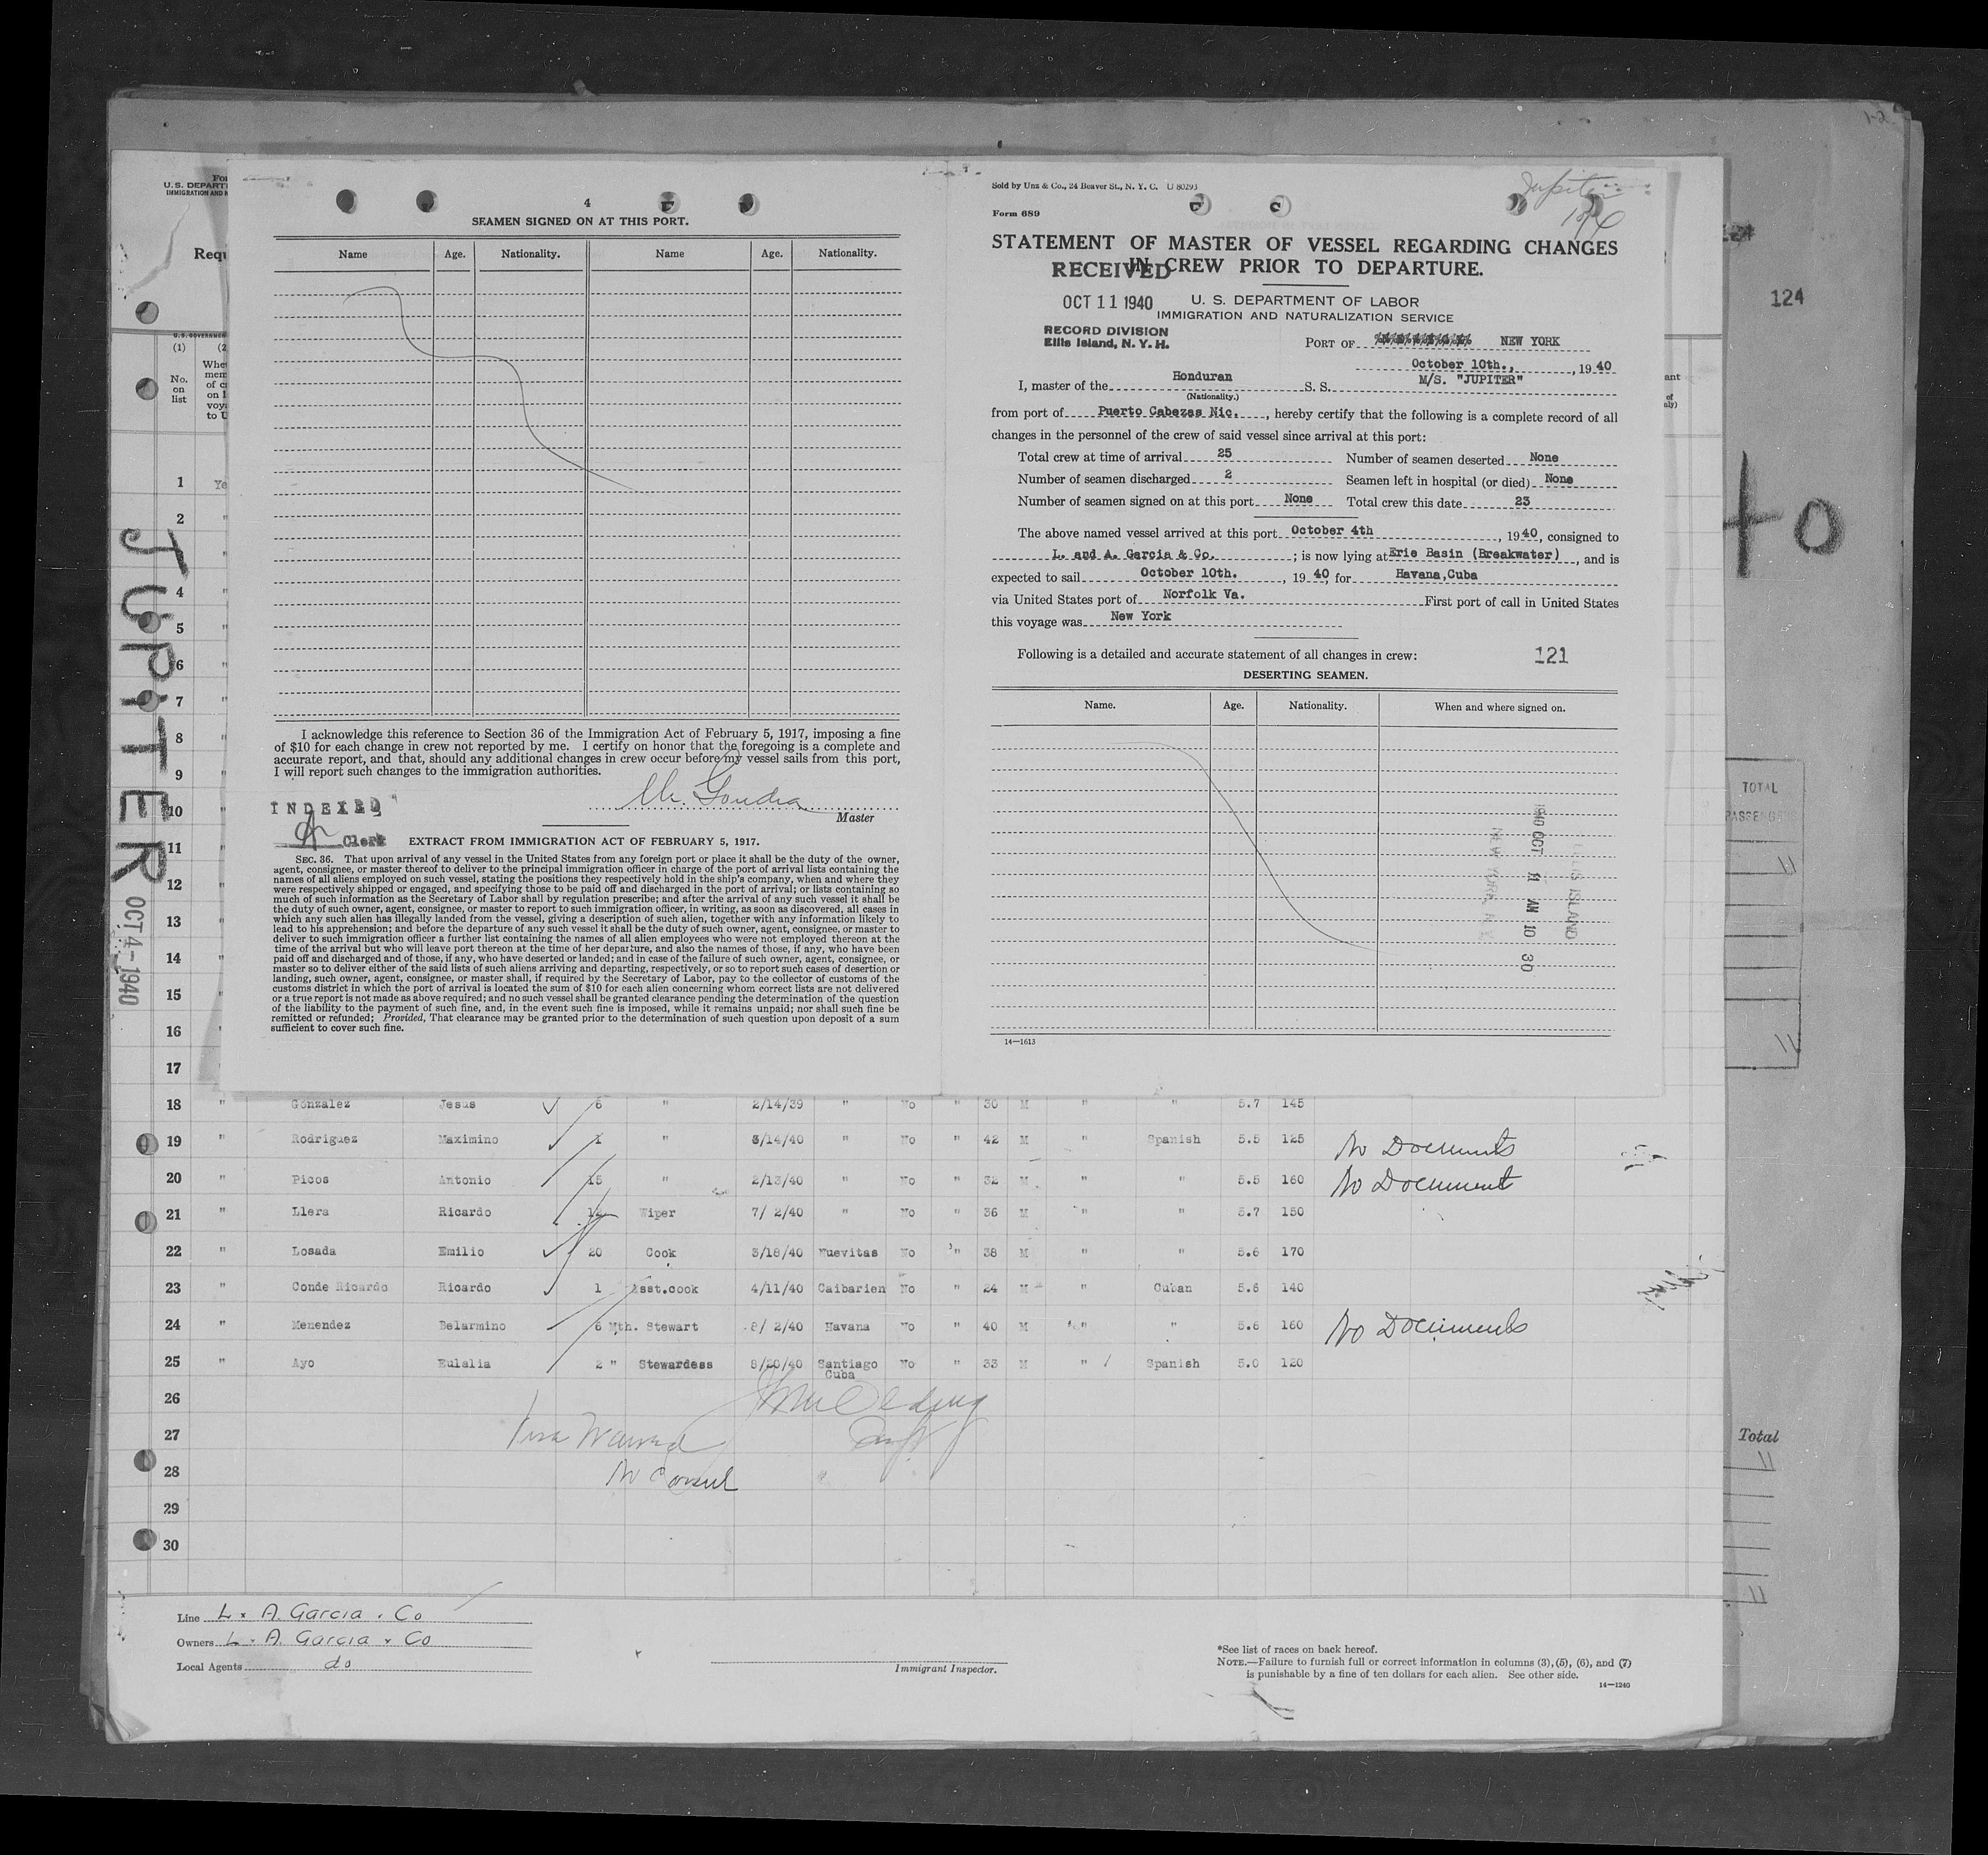 4
SEAMEN SIGNED ON AT THIS PORT.
Name Age. Nationality. Name Age. Nationality.
I acknowledge this reference to Section 36 of the Immigration Act of February 5, 1917, imposing a fine
of $10 for each change in crew not reported by me. I certify on honor that the foregoing is a complete and
accurate report, and that, should any additional changes in crew occur before my vessel sails from this port,
I will report such changes to the immigration authorities.
INDEXED
Master
Clerk
EXTRACT FROM IMMIGRATION ACT OF FEBRUARY 5, 1917.
SEC. 36. That upon arrival of any vessel in the United States from any foreign port or place it shall be the duty of the owner,
agent, consignee, or master thereof to deliver to the principal immigration officer in charge of the port of arrival lists containing the
names of all aliens employed on such vessel, stating the positions they respectively hold in the ship's company, when and where they
were respectively shipped or engaged, and specifying those to be paid off and discharged in the port of arrival; or lists containing so
much of such information as the Secretary of Labor shall by regulation prescribe; and after the arrival of any such vessel it shall be
the duty of such owner, agent, consignee, or master to report to such immigration officer, in writing, as soon as discovered, all cases in
which any such alien has illegally landed from the vessel, giving a description of such alien, together with any information likely to
lead to his apprehension; and before the departure of any such vessel it shall be the duty of such owner, agent, consignee, or master to
deliver to such immigration officer a further list containing the names of all alien employees who were not employed thereon at the
time of the arrival but who will leave port thereon at the time of her departure, and also the names of those, if any, who have been
paid off and discharged and of those, if any, who have deserted or landed; and in case of the failure of such owner, agent, consignee, or
master so to deliver either of the said lists of such aliens arriving and departing, respectively, or so to report such cases of desertion or
landing, such owner, agent, consignee, or master shall, if required by the Secretary of Labor, pay to the collector of customs of the
customs district in which the port of arrival is located the sum of $10 for each alien concerning whom correct lists are not delivered
or a true report is not made as above required; and no such vessel shall be granted clearance pending the determination of the question
of the liability to the payment of such fine, and, in the event such fine is imposed, while it remains unpaid; nor shall such fine be
remitted or refunded; Provided, That clearance may be granted prior to the determination of such question upon deposit of a sum
sufficient to cover such fine.
Sold by Unz & Co., 24 Beaver St., N. Y. C. U 80293
Jupiter
Form 689
STATEMENT OF MASTER OF VESSEL REGARDING CHANGES
IN CREW PRIOR TO DEPARTURE.
RECEIVED
OCT 11 1940
RECORD DIVISION
Ellis Island, N. Y. H.
U. S. DEPARTMENT OF LABOR
IMMIGRATION AND NATURALIZATION SERVICE
PORT OF NEW YORK
October 10th., , 1940
I, master of the Honduran S. S. M/S. "JUPITER"
(Nationality.)
from port of Puerto Cabezas Nic. , hereby certify that the following is a complete record of all
changes in the personnel of the crew of said vessel since arrival at this port:
Total crew at time of arrival 25 Number of seamen deserted None
Number of seamen discharged 2 Seamen left in hospital (or died) None
Number of seamen signed on at this port None Total crew this date 23
The above named vessel arrived at this port October 4th , 1940, consigned to
L. and A. Garcia & Co. ; is now lying at Erie Basin (Breakwater) , and is
expected to sail October 10th. , 1940, for Havana,Cuba
via United States port of Norfolk Va. First port of call in United States
this voyage was New York
Following is a detailed and accurate statement of all changes in crew: 121
DESERTING SEAMEN.
Name. Age. Nationality. When and where signed on.
1940 OCT 11 AM 10 30
ELLIS ISLAND
NEW YORK, N.Y.
14—1613
U.S. DEPART
IMMIGRATION AND N
Requ
(1) (2
No. on list
1 Ye
2
4
5
6
7
8
9
10
11
12
13
14
15
16
17
JUPITER
OCT 4-1940
18 " Gonzalez Jesus 6 " 2/14/39 " No " 30 M " " 5.7 145
19 " Rodriguez Maximino 1 " 5/14/40 " No " 42 M " Spanish 5.5 125 No Documents
20 " Picos Antonio 15 " 2/13/40 " No " 32 M " " 5.5 160 No Document
21 " Llera Ricardo Wiper 7/ 2/40 " No " 36 M " " 5.7 150
22 " Losada Emilio 20 Cook 3/18/40 Nuevitas No " 38 M " " 5.6 170
23 " Conde Ricardo Ricardo 1 Asst.cook 4/11/40 Caibarien No " 24 M " Cuban 5.6 140
24 " Menendez Belarmino 6 Mth. Stewart 8/ 2/40 Havana No " 40 M " " 5.6 160 No Documents
25 " Ayo Eulalia 2 " Stewardess 8/20/40 Santiago Cuba No " 33 M " Spanish 5.0 120
26
27 Visa Waived
28 No Consul
29
30
Line L. A. Garcia . Co
Owners L. A. Garcia . Co
Local Agents do
Immigrant Inspector.
*See list of races on back hereof.
NOTE.—Failure to furnish full or correct information in columns (3), (5), (6), and (7)
is punishable by a fine of ten dollars for each alien. See other side.
14—1240
124
40
TOTAL
PASSENGERS
11
11
Total
11
11